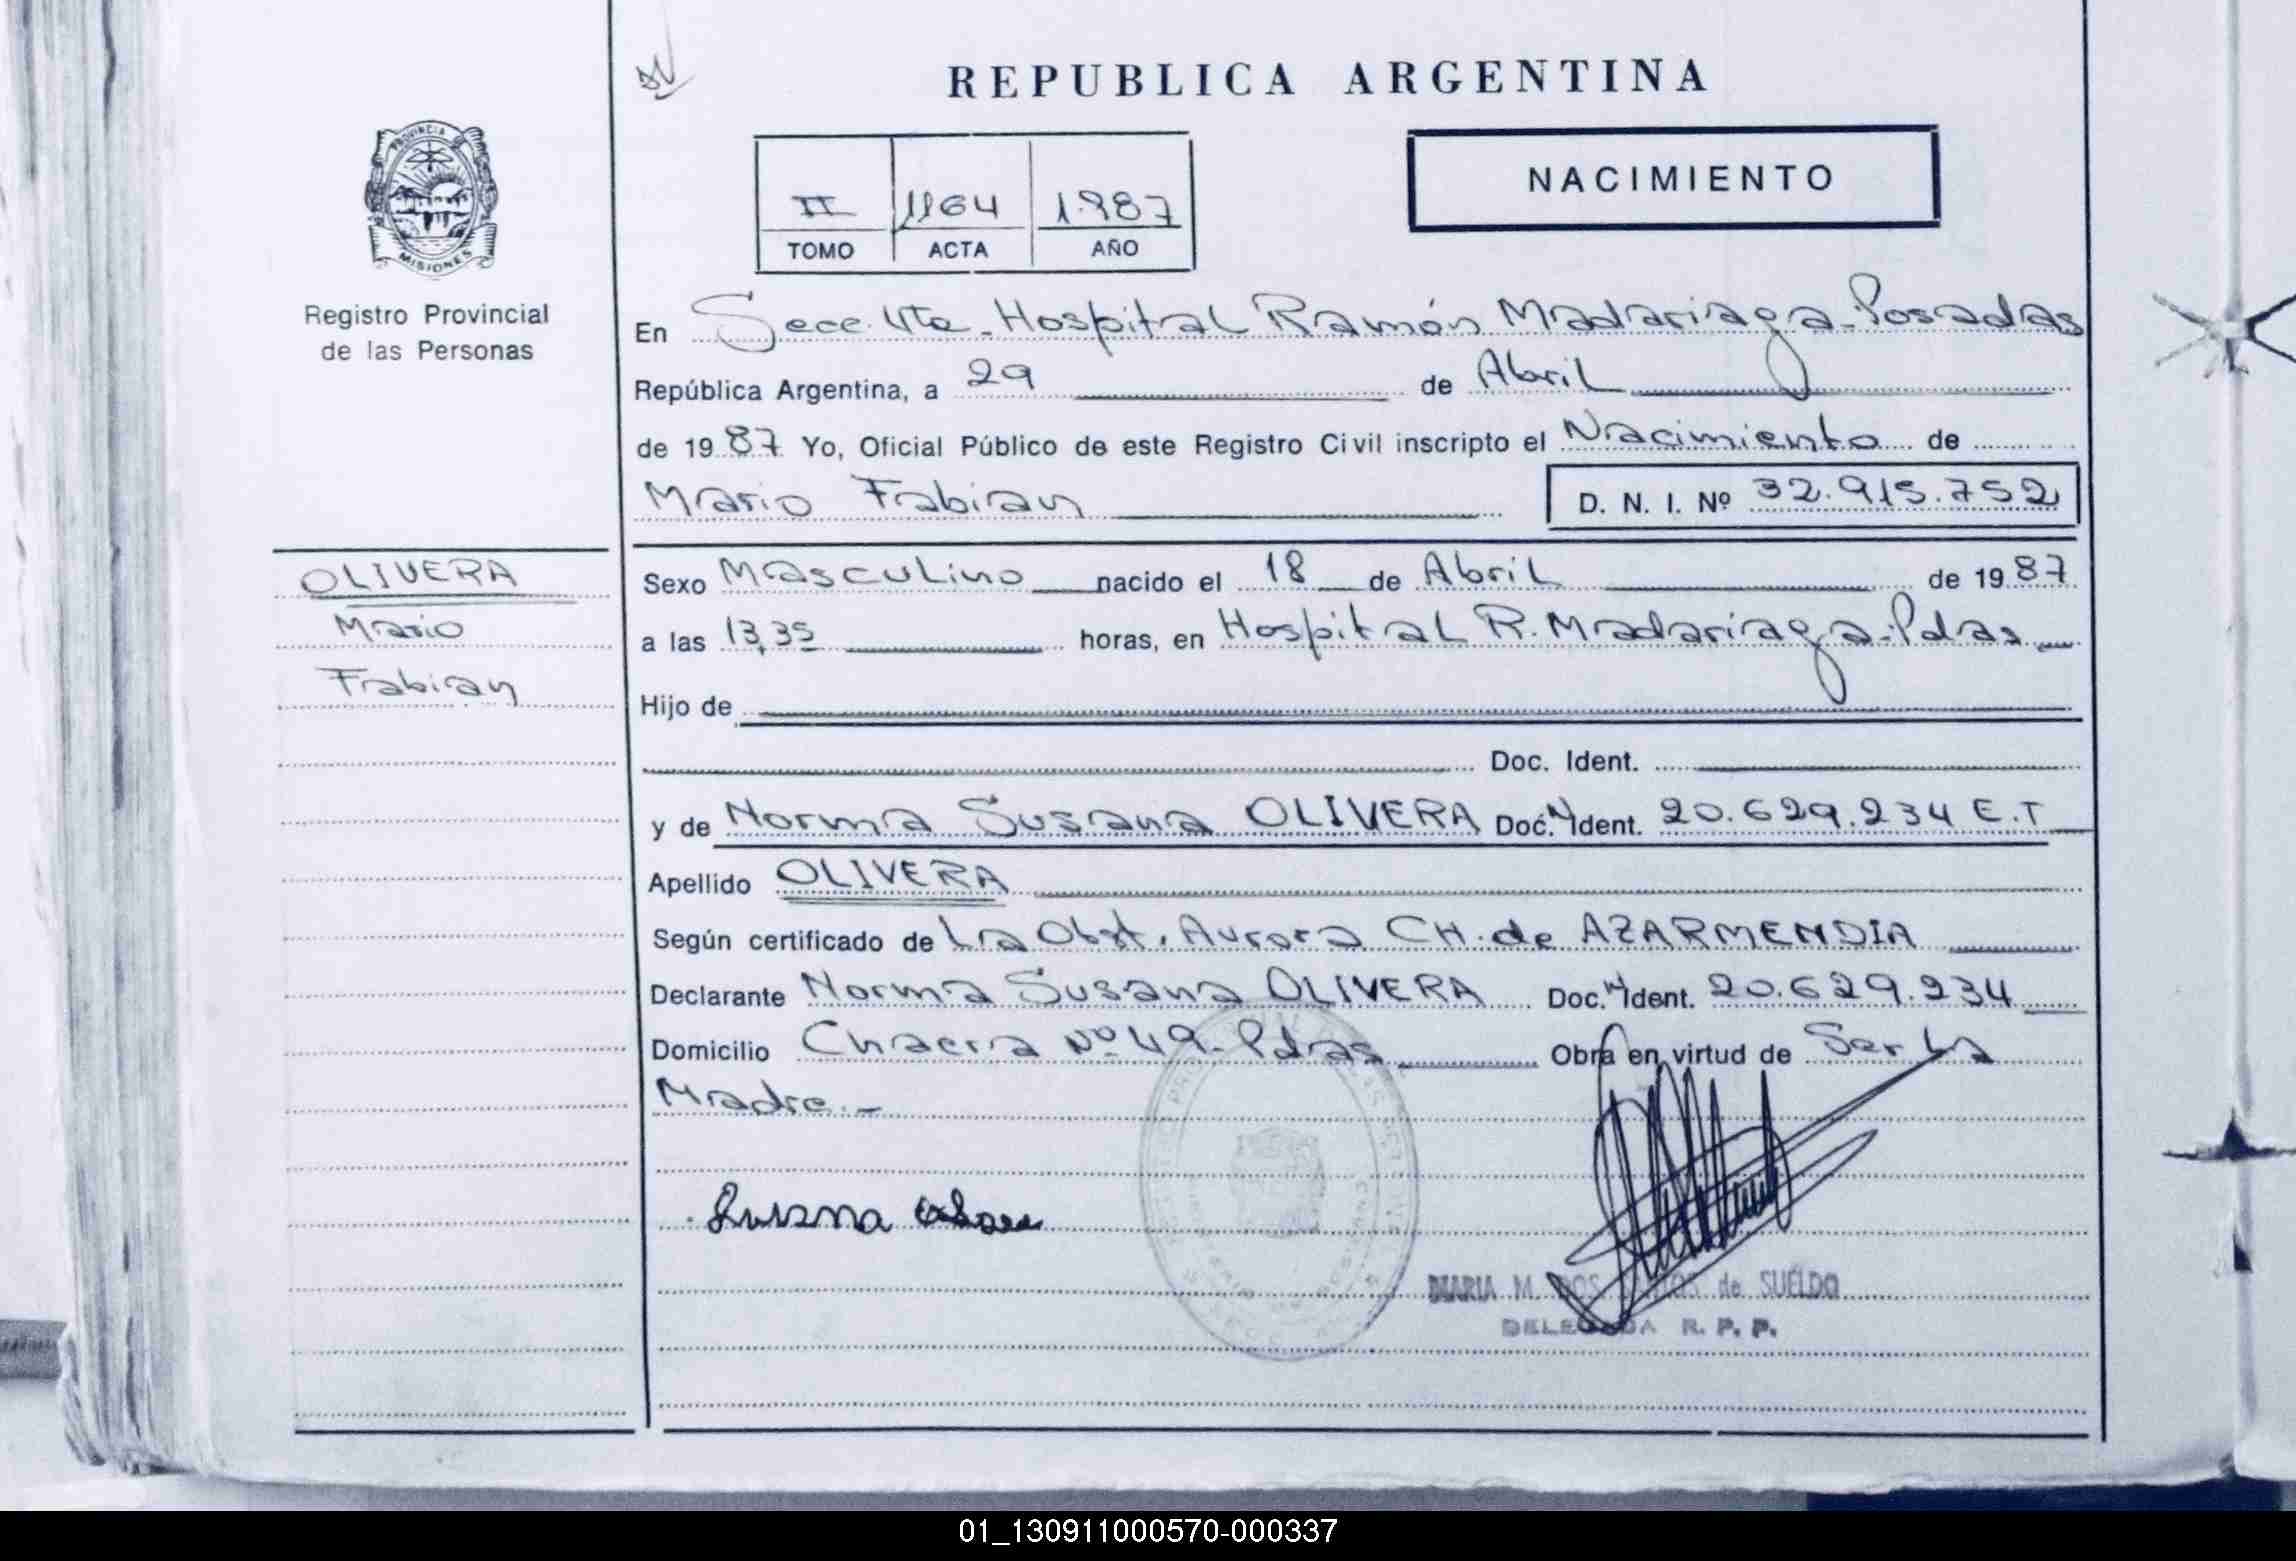 REPUBLICA ARGENTINA
PROVINCIA
MISIONES
Registro Provincial
de las Personas
II 1164 1.987
TOMO ACTA AÑO
NACIMIENTO
En Secc. 4ta - Hospital Ramón Madariaga - Posadas
República Argentina, a 29 de Abril
de 1987 Yo, Oficial Público de este Registro Civil inscripto el Nacimiento de
Mario Fabian
D. N. I. Nº 32.915.752
OLIVERA
Mario
Fabian
Sexo Masculino nacido el 18 de Abril de 1987
a las 13,35 horas, en Hospital R. Madariaga - Pdas
Hijo de
Doc. Ident.
y de Norma Susana OLIVERA Doc. N Ident. 20.629.234 E.T
Apellido OLIVERA
Según certificado de La Obst. Aurora CH. de AZARMENDIA
Declarante Norma Susana OLIVERA Doc. N Ident. 20.629.234
Domicilio Chacra Nº 49 - Pdas Obra en virtud de Ser La
Madre.-
Susana
MARIA M. DOS de SUELDO
DELEGADA R. P. P.
01_130911000570-000337